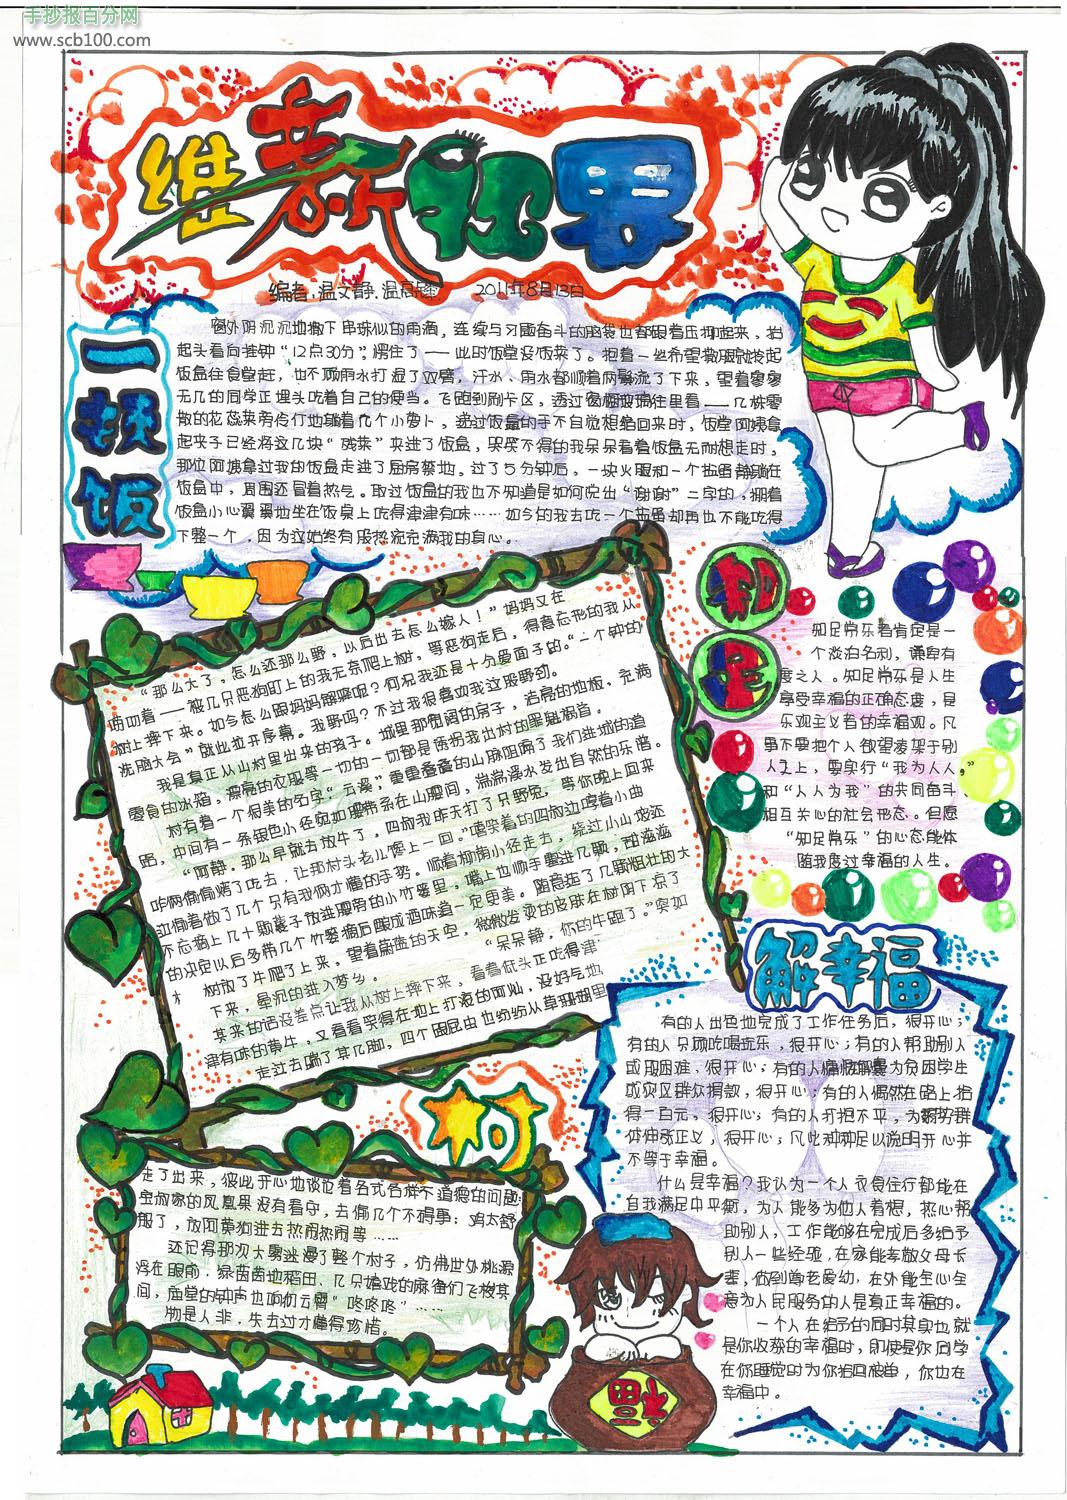 手抄报百分网
www.scb100.com
维新视界
编者:温文静.温 2011年8月13日
一顿饭
窗外阴沉沉地撒下串珠似的雨滴,连续与习题奋斗的脑袋也都跟着压抑起来,抬
起头看向挂钟“12点30分”,愣住了——此时饭堂没饭来了。抱着一丝希望
饭盒往食堂赶,也不顾雨水打湿了双臂,汗水、雨水都顺着两鬓流了下来,望着寥寥
无几的同学正埋头吃着自己的便当。飞跑到刷卡区,透过玻璃往里看——几块零
散的花菜旁伶仃地躺着几个小萝卜,递过饭盒的手不自觉想缩回来时,饭堂阿姨拿
起夹子已经将这几块“残菜”夹进了饭盒,哭笑不得的我呆呆看着饭盒无耐想走时,
那位阿姨拿过我的饭盒走进了厨房基地。过了5分钟后,一块火腿和一个荷包蛋躺在
饭盒中,周围还冒着热气。取过饭盒的我也不知道是如何说出“谢谢”二字的,捧着
饭盒小心翼翼地坐在饭桌上吃得津津有味……如今的我去吃一个却再也不能吃得
下整一个,因为这始终有股热流充满我的身心。
知足
知足常乐者肯定是一
个淡泊名利,谦卑有
度之人。知足常乐是人生
享受幸福的正确态度,是
乐观主义者的幸福观。凡
事不要把个人欲望凌驾于别
人之上,要实行“我为人人,”
和“人人为我”的共同奋斗
相互关心的社会形态。但愿
“知足常乐”的心态能体
随我度过幸福的人生。
“那么大了,怎么还那么野,以后出去怎么嫁人!”妈妈又在
唠叨着——被几只恶狗盯上的我无奈爬上树,等恶狗走后,得意忘形的我从
树上摔下来。如今怎么跟妈妈解释呢?何况我还是十分爱面子的。“一个钟的
洗脑大会”就此拉开序幕。我野吗?不过我很喜欢我这股野劲。
我是真正从山村里出来的孩子。城里那带阔的房子,洁亮的地板,充满
零食的冰箱,漂亮的衣服等一切的一切都是诱拐我出村的罪魁祸首。
村有着一个很美的名字“云溪”,重重叠叠的山脉阻隔了我们进城的道
路,中间有一条银色小径宛如腰带系在山腰间,湍湍溪水发出自然的乐谱。
“阿静,那么早就去放牛了,四叔我昨天打了只野兔,等你晚上回来
咋俩偷偷烤了吃去,让那村头老么馋上一回。”嘻笑着的四叔边哼着小曲
边偷着做了几个只有我俩才懂的手势。顺着树荫小径走去,绕过小山坡还
不忘摘上几十颗囊子放进腰旁的小竹篓里,嘴上也顺手塞进几颗,甜滋滋
的决定以后多带几个竹篓摘后酿成酒味道一定更美。随意拴了几颗粗壮的大
树放了牛爬了上来,望着蔚蓝的天空,微微发烫的皮肤在树阴下凉了
下来,晕沉的进入梦乡。“呆呆静,你的牛跑了。”突如
其来的话没差点让我从树上摔下来,看着低头正吃得津
津有味的黄牛,又看看笑得在地上打滚的阿灿,没好气地
走过去踹了某几脚,四个围昆虫也纷纷从草
村
走了出来,彼此开心地谈论着各式各样不道德的问题:
宝叔家的凤凰果没有看守,去偷几个不碍事;鸡太舒
服了,放阿黄狗进去热闹热闹等……
还记得那次大雾迷漫了整个村子,仿佛世外桃源
浮在眼前,绿茵茵地稻田、几只嬉戏的麻雀们飞梭其
间,庙堂的钟声也响彻云霄“咚咚咚”……
物是人非,失去过才懂得珍惜。
解幸福
有的人出色地完成了工作任务后,很开心;
有的人只顾吃喝玩乐,很开心;有的人帮助别人
或取困难,很开心;有的人慷慨解囊为贫困学生
或灾区群众捐款,很开心;有的人偶然在路上拾
得一百元,很开心;有的人打抱不平,为弱势群
体伸张正义,很开心;凡此种种足以说明开心并
不等于幸福。
什么是幸福?我认为一个人衣食住行都能在
自我满足中平衡,为人能多为他人着想,热心帮
助别人,工作能够在完成后多给予
别人一些经验,在家能孝敬父母长
辈,做到尊老爱幼,在外能全心全
意为人民服务的人是真正幸福的。
一个人在给予的同时其实也就
是你收获的幸福时,即使是你同学
在你睡觉时为你拾回被单,你也在
幸福中。
福